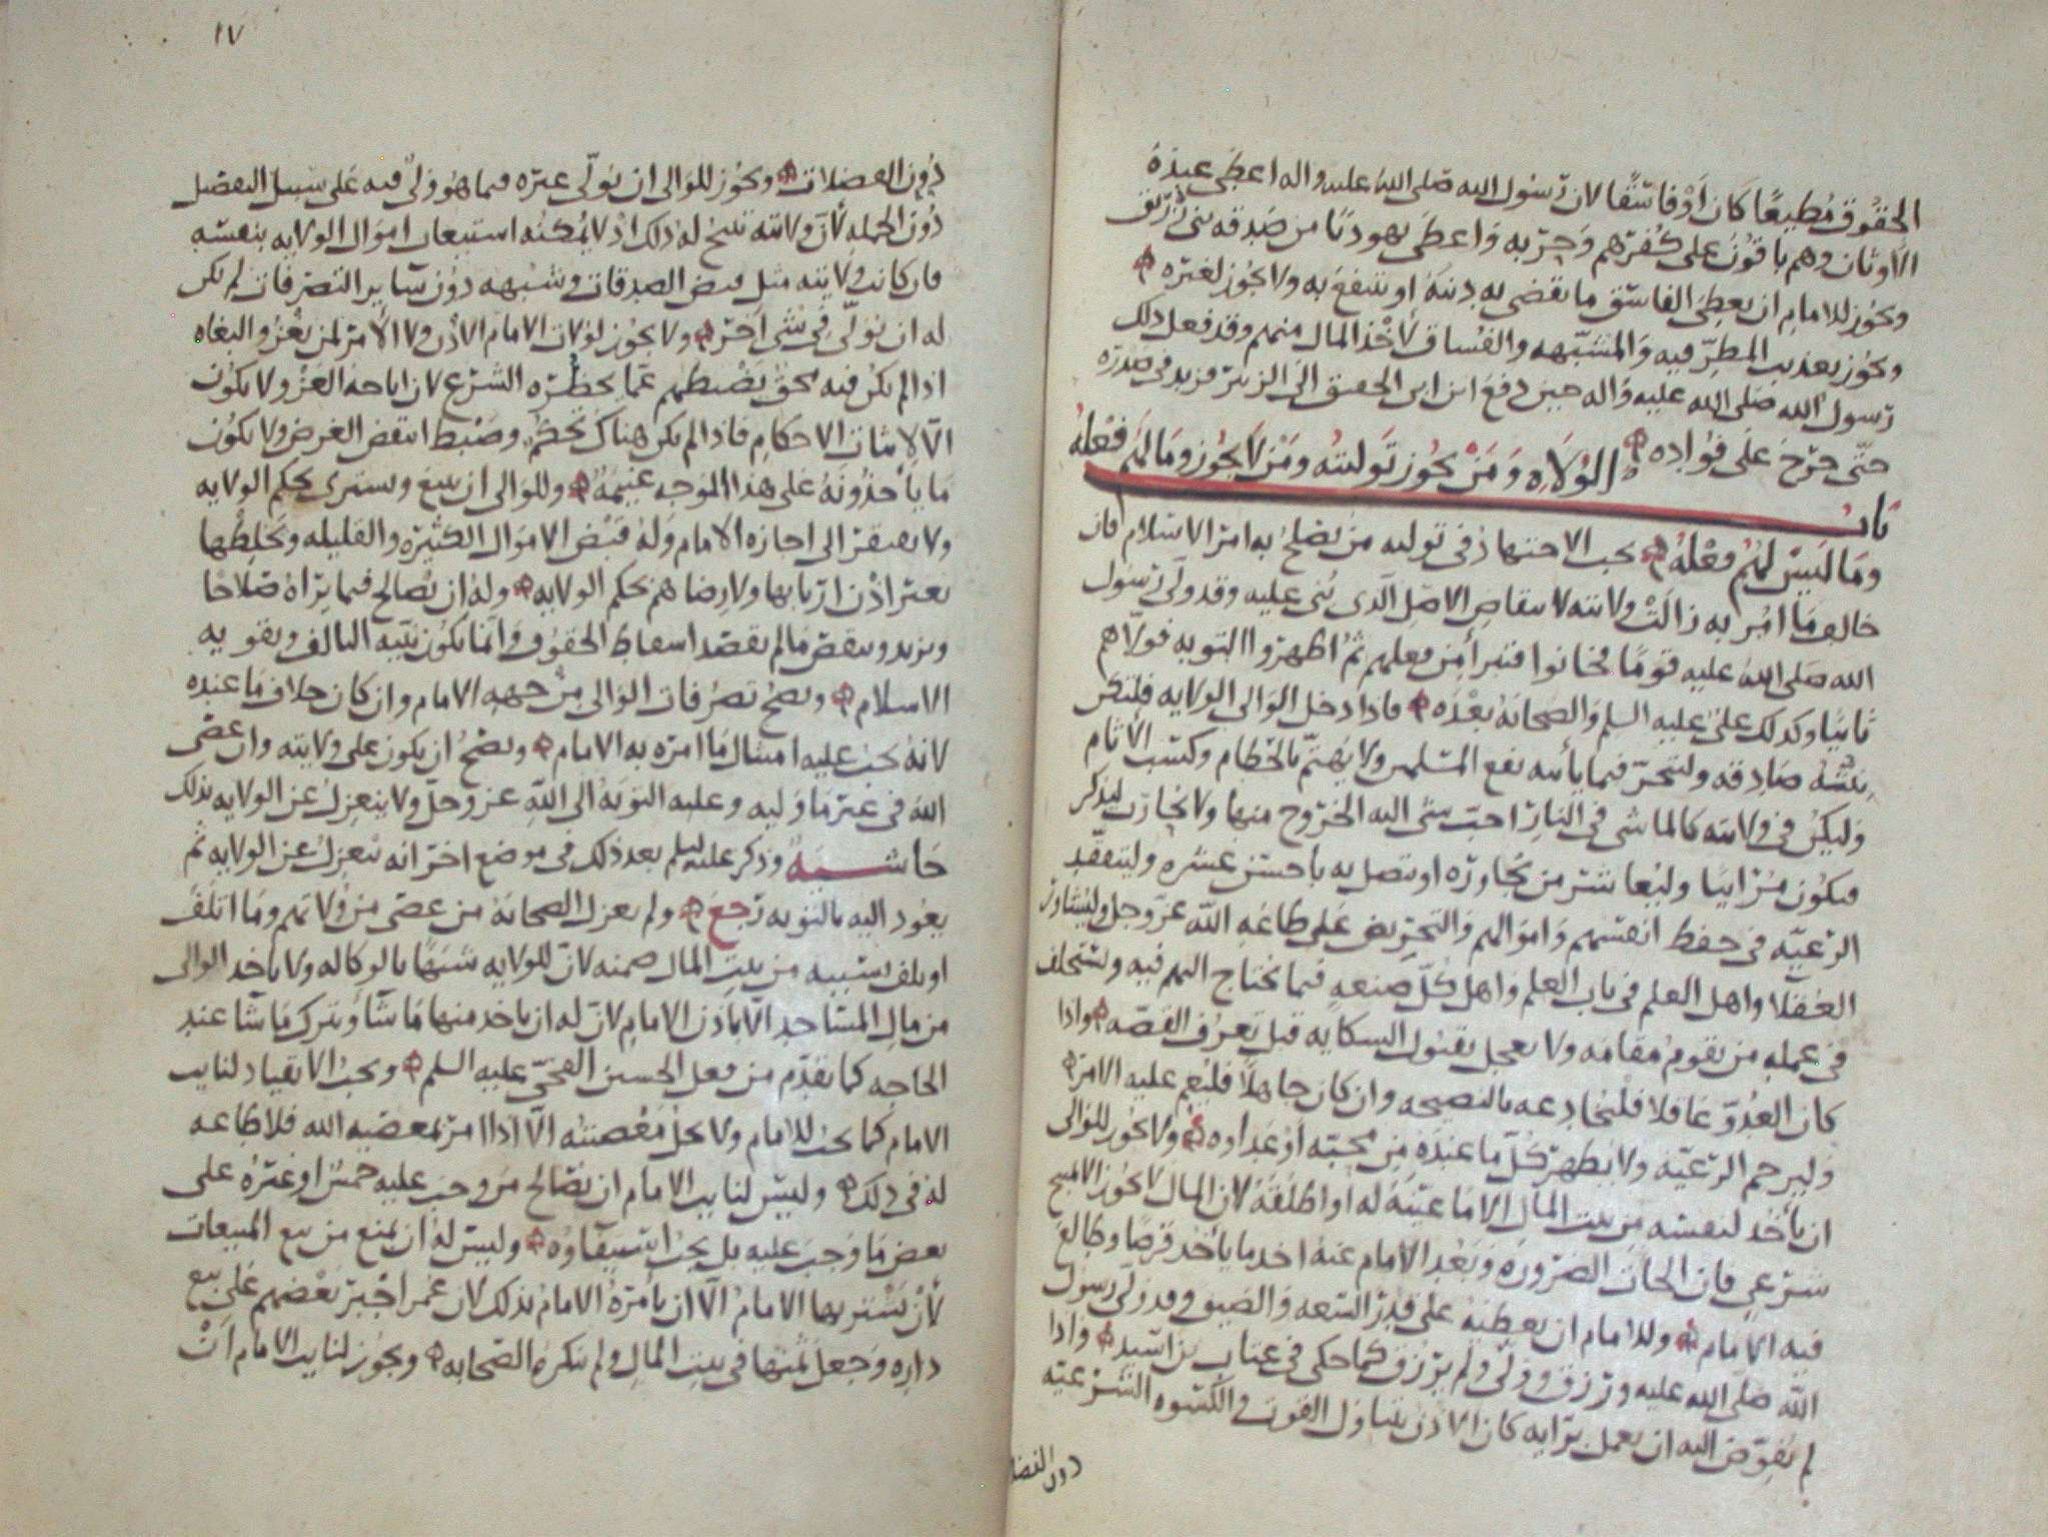 الحقوق مطيعًا كان أو فاسقًا لان رسول الله صلى الله عليه واله اعطى عبدة
الاوثان وهم باقون على كفرهم وحربه واعطى يهوديًا من صدقه بني زريق
ويجوز للامام ان يعطى الفاسق ما يقضى به دينه او ينتفع به ولا يجوز لغيره
ويجوز تعذيب المطرفيه والمشبهه والفساق لأخذ المال منهم وقد فعل ذلك
رسول الله صلى الله عليه واله حين دفع ابن ابى الحقيق الى الزبير فزيد في صدره
حتى حرح على فؤاده
باب الولاه ومن يجوز توليته ومن لا يجوز وما لهم فعله
وما ليس لهم فعله يجب الاجتهاد في توليه من يصلح به امر الاسلام فان
خالف ما امر به زالت ولايته لانتقاض الاصل الذى بنى عليه وقد ولى رسول
الله صلى الله عليه قومًا فخانوا فتبرأ من فعلهم ثم اظهروا التوبه فولاهم
ثانيًا وكذلك على عليه السلم والصحابة بعده فاذا دخل الوالى الولايه فلتكن
نيته صادقه وليتحر فيما يأتيه نفع المسلمين ولا يهتم بالحطام وكسب الأثام
وليكن في ولايته كالماشى في النار احب شى اليه الخروج منها ولا يحارب ليذكر
فيكون مرائيا وليعاشر من يجاوره او يتصل به باحسن عشره وليتفقد
الرعيه في حفظ انفسهم واموالهم والتحريض على طاعه الله عز وجل وليشاور
العقلا واهل العلم في باب العلم واهل كل صنعه فيما يحتاج اليهم فيه ويستخلف
في عمله من يقوم مقامه ولا يعجل بقبول السكايه قبل تعرف القصه واذا
كان العدو غافلا فليخادعه بالنصيحه وان كان جاهلًا فليعم عليه الامر
وليرحم الرعيه ولا يظهر كل ما عنده من محبته او عداوه ولا يجوز للوالى
ان يأخذ لنفسه من بيت المال الا ما عينه له او اطلقه لان المال لا يجوز الا لمبيح
شرعي فان الجات الضروره وبعد الامام عنه اخذ ما يأخذ قرضًا وطالع
فيه الامام وللامام ان يعطيه على قدر السعه والضيق وقد ولى رسول
الله صلى الله عليه ورزق وولى ولم يرزق كما حكى في عتاب بن اسيد واذا
لم يفوض اليه ان يعمل برايه كان الاذن يتناول القوت والكسوه الشرعيه
دون الفضلا
١٧
دون الفضلات ويجوز للوالى ان يولى غيره فيما هو ولى فيه على سبيل التفصيل
دون الجمله لأن ولايته تبيح له ذلك اذ لا يمكنه استيعاب اموال الولايه بنفسه
فان كانت ولايته مثل قبض الصدقات وشبهه دون ساير التصرفات لم يكن
له ان يولى في شى اخر ولا يجوز لولات الامام الاذن ولا الامر لمن يغزو البغاه
اذا لم يكن فيه محق يضبطهم عما يحظره الشرع لان اباحه الغزو لا يكون
الا لاثبات الاحكام فاذا لم يكن هناك تحكم وضبط انتقض الغرض ولا يكون
ما يأخذونه على هذا الوجه غنيمة وللوالى ان يبيع ويشترى بحكم الولايه
ولا يفتقر الى اجازه الامام وله قبض الاموال الكثيره والقليله وتخليطها
بغير اذن اربابها ولا رضاهم بحكم الولايه وله ان يصالح فيما يراه صلاحًا
ويزيد وينقص ما لم يقصد اسقاط الحقوق وانما يكون نيته التالف وتقويه
الاسلام ويصح تصرفات الوالى من جهه الامام وان كان خلاف ما عنده
لانه يجب عليه امتثال ما امره به الامام ويصح ان يكون على ولايته وان عصى
الله في غير ما وليه وعليه التوبه الى الله عز وجل ولا ينعزل عن الولايه بذلك
حاشيه وذكر عليلم بعد ذلك في موضع اخر انه ينعزل عن الولايه ثم
يعود اليه بالتوبه رجع ولم يعزل الصحابة من عصى من ولاتهم وما اتلف
او تلف بسببه من بيت المال ضمنه لان للولايه شبهًا بالوكاله ولا ياخذ الوالى
من مال المساجد الا باذن الامام لان له ان ياخذ منها ما شأ ويترك ما شأ عند
الحاجه كما تقدم من فعل الحسين الفخى عليه السلم ويجب الانقياد لنايب
الامام كما يجب للامام ولا تحل معصيته الا اذا امر بمعصيه الله فلا طاعه
له في ذلك وليس لنايب الامام ان يصالح من وجب عليه خمس او غيره على
بعض ما وجب عليه بل يجب استيفاؤه وليس له ان يمنع من بيع المبيعات
لأن يشتريها الامام الا ان يأمره الامام بذلك لان عمر اجبر بعضهم على بيع
داره وجعل ثمنها في بيت المال ولم ينكره الصحابه ويجوز لنايب الامام ان